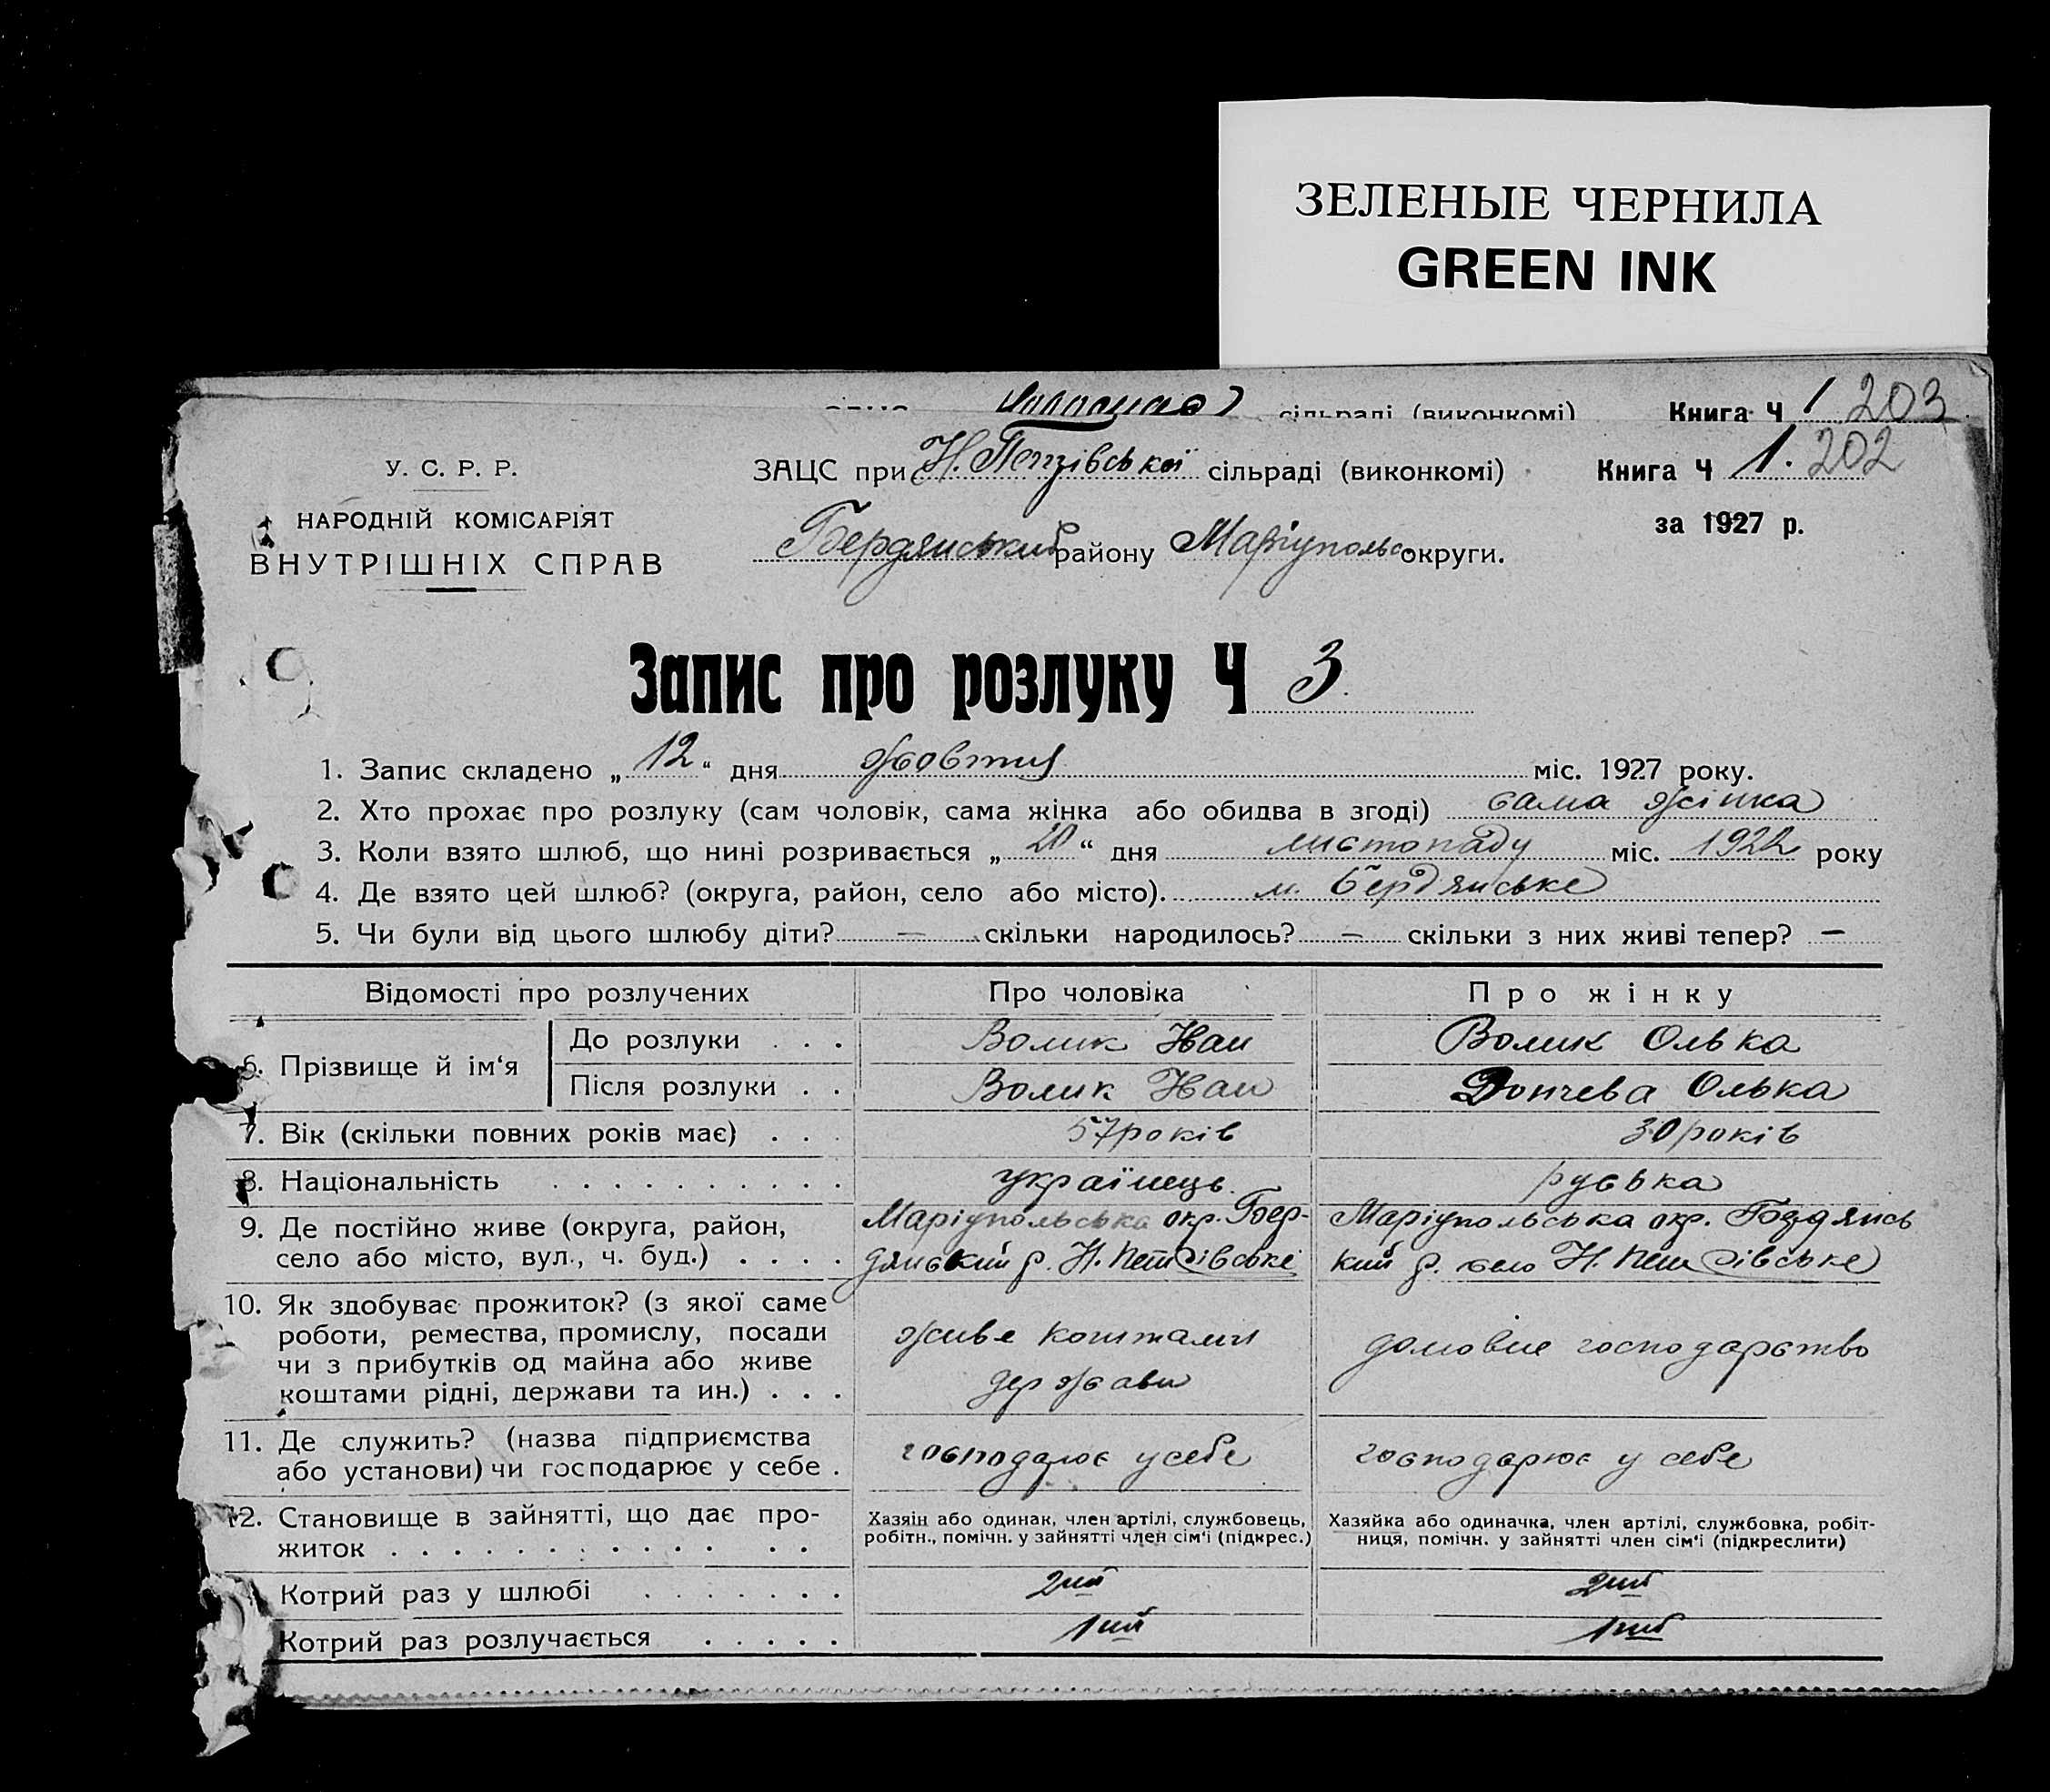 ЗЕЛЕНЫЕ ЧЕРНИЛА
GREEN INK
сільраді (виконкомі) Книга Ч 1 203
У. С. Р. Р. ЗАЦС при Н. Петрівської сільраді (виконкомі) Книга Ч 1. 202
НАРОДНІЙ КОМІСАРІЯТ за 1927 р.
ВНУТРІШНІХ СПРАВ Бердянський району Маріупольс. округи.
Запис про розлуку Ч 3.
1. Запис складено „ 12 “ дня жовтня міс. 1927 року.
2. Хто прохає про розлуку (сам чоловік, сама жінка або обидва в згоді) сама жінка
3. Коли взято шлюб, що нині розривається „ 20 “ дня листопаду міс. 1922 року
4. Де взято цей шлюб? (округа, район, село або місто). м. Бердянське
5. Чи були від цього шлюбу діти? — скільки народилось? — скільки з них живі тепер? —
Відомості про розлучених Про чоловіка Про жінку
6. Прізвище й ім‘я До розлуки . . . Волик Іван Волик Олька
Після розлуки . . Волик Іван Дончева Олька
7. Вік (скільки повних років має) . . . 57 років 30 років
8. Національність . . . . . . . . . . українець. руська
9. Де постійно живе (округа, район, Маріупольська окр. Бер- Маріупольська окр. Бердянсь
село або місто, вул., ч. буд.) . . . . дянський р. Н. Петрівські кий р. село Н. Петрівське
10. Як здобуває прожиток? (з якої саме
роботи, ремества, промислу, посади живе коштами домовне господарство
чи з прибутків од майна або живе
коштами рідні, держави та ин.) . . . держави
11. Де служить? (назва підприємства господарює у себе господарює у себе
або установи) чи господарює у себе .
12. Становище в зайнятті, що дає про- Хазяїн або одинак, член артілі, службовець, Хазяйка або одиначка, член артілі, службовка, робіт-
житок . . . . . . . . . . . . робітн., помічн. у зайнятті член сім‘ї (підкрес.) ниця, помічн. у зайнятті член сім‘ї (підкреслити)
Котрий раз у шлюбі . . . . . . . 2ий 2ий
Котрий раз розлучається . . . . . 1ий 1ий